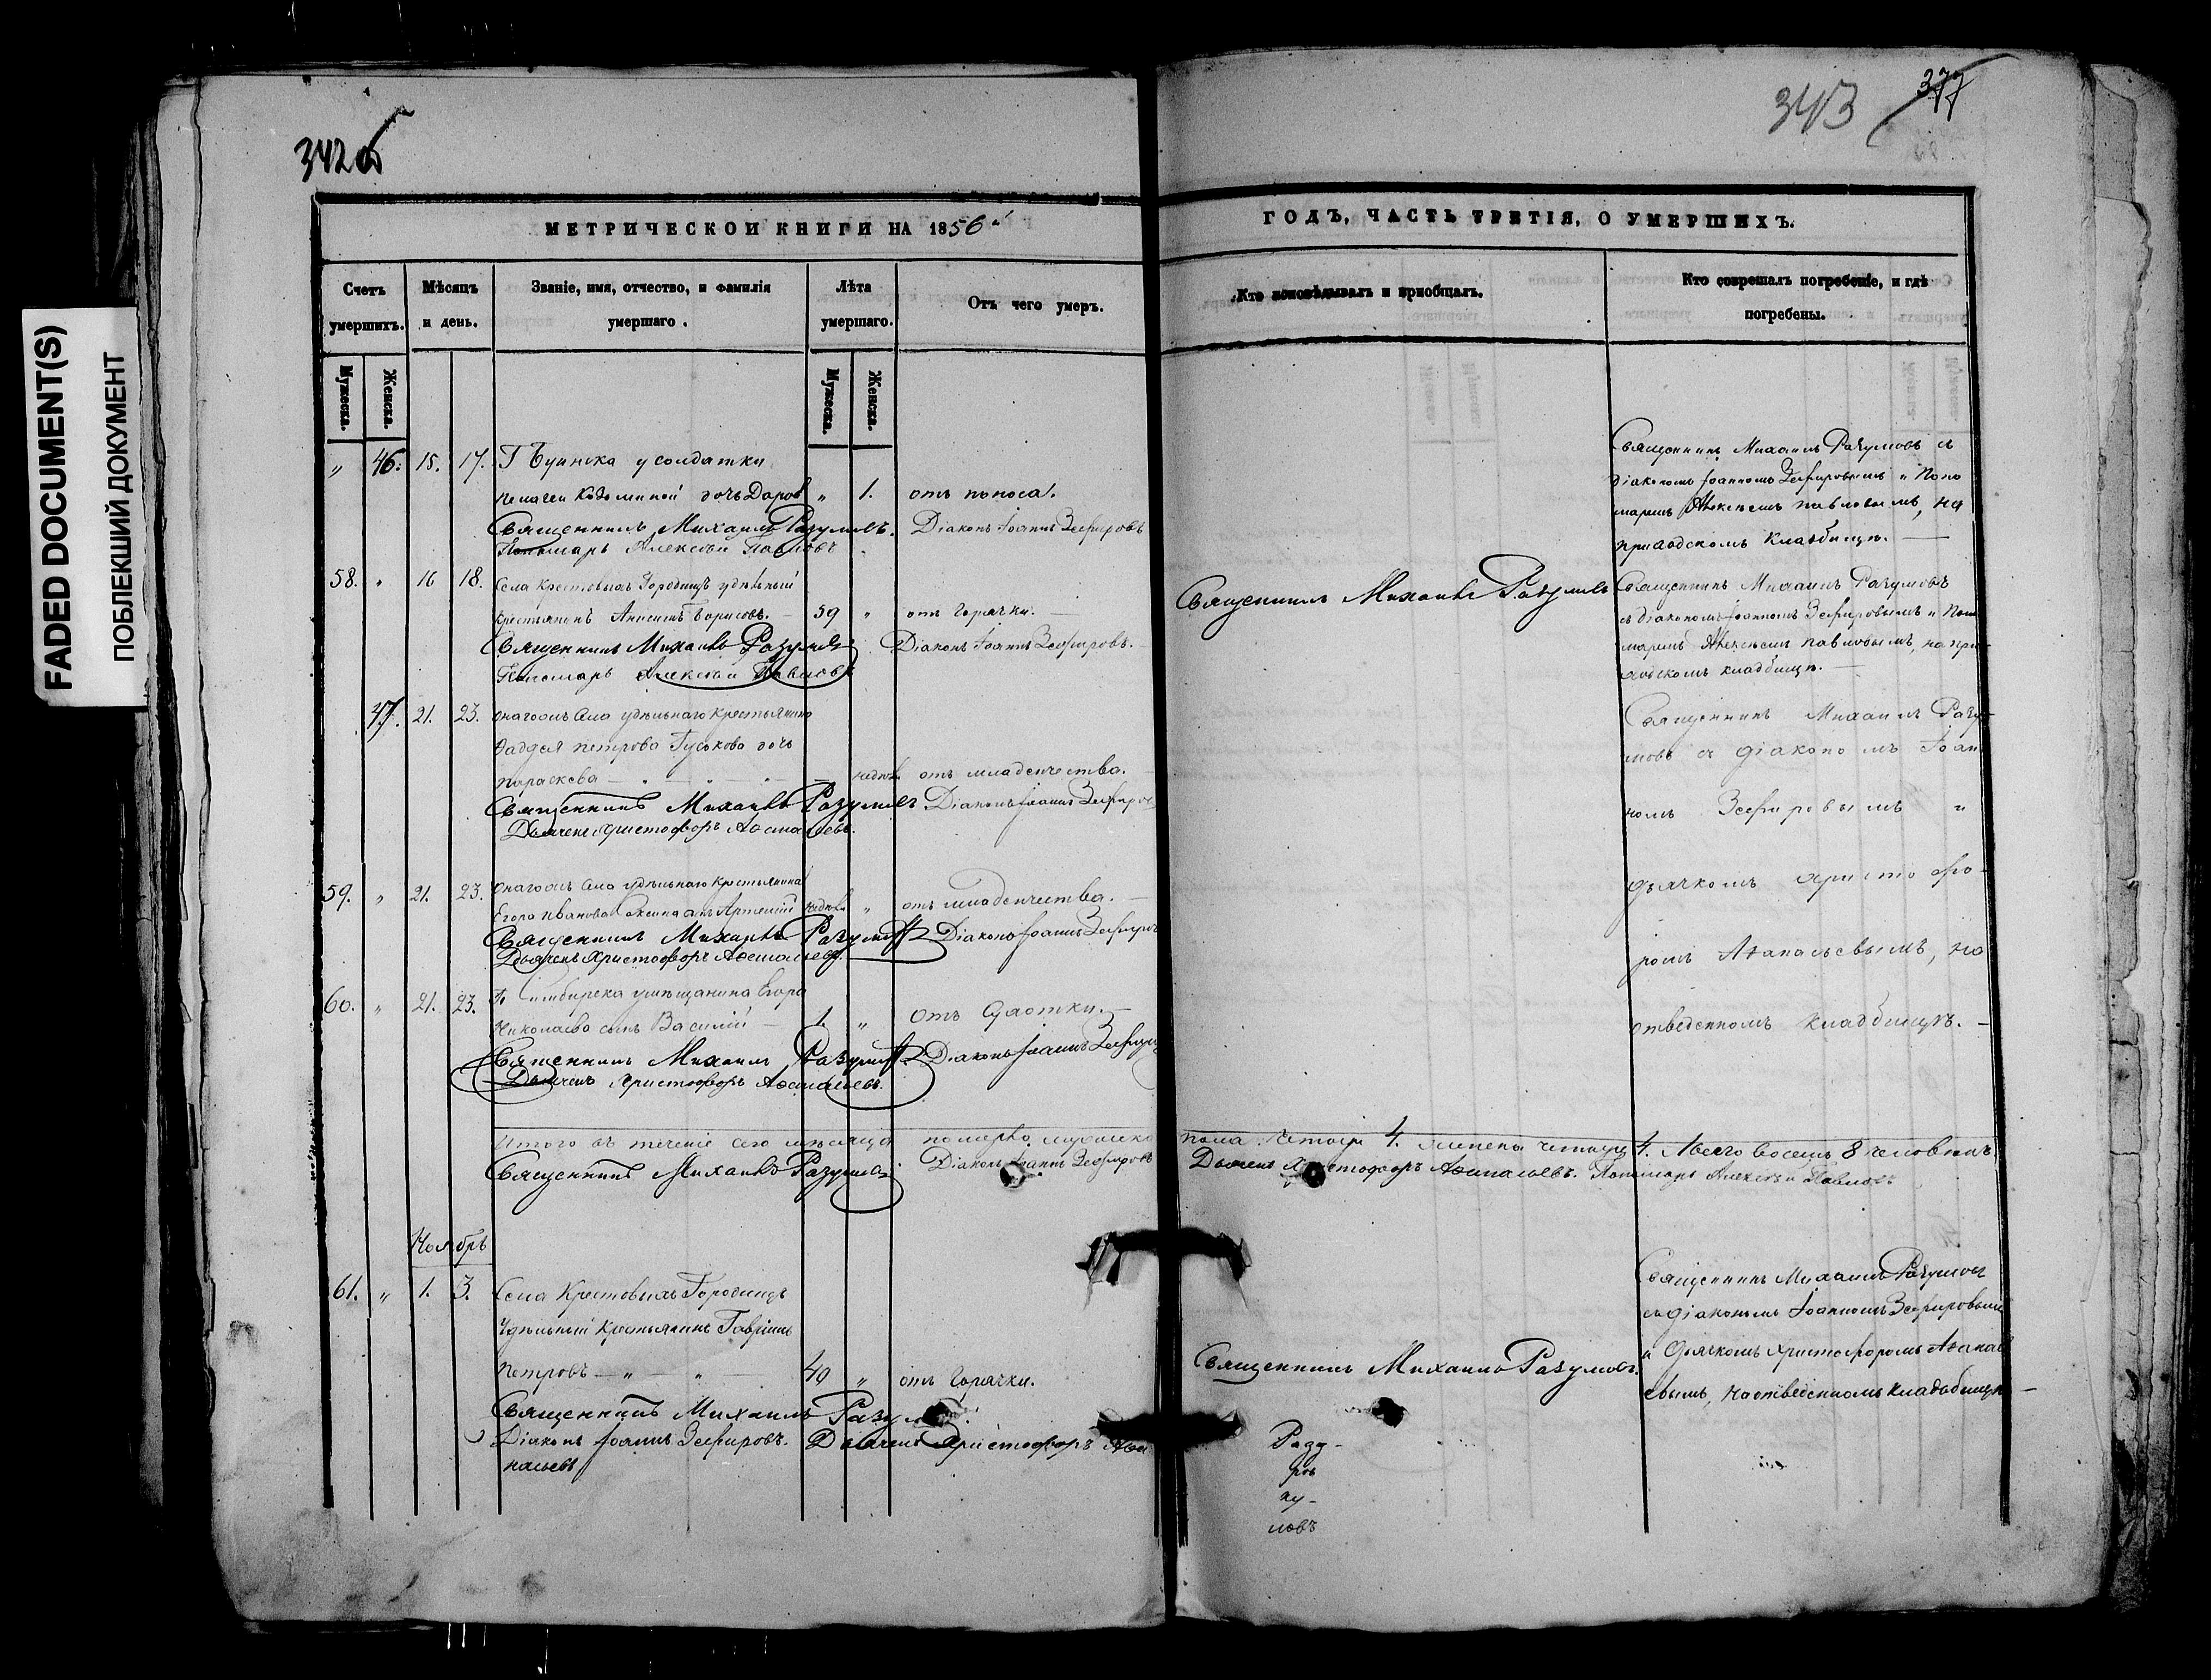 FADED DOCUMENT(S)
ПОБЛЕКШИЙ ДОКУМЕНТ
342об
343 377
МЕТРИЧЕСКОЙ КНИГИ НА 1856й
ГОДЪ, ЧАСТЬ ТРЕТІЯ, О УМЕРШИХЪ.
Счетъ умершихъ.
Мѣсяцъ и день.
Званіе, имя, отчество, и фамилія умершаго.
Лѣта умершаго.
Отъ чего умеръ.
Кто исповѣдывалъ и пріобщалъ.
Кто совершалъ погребеніе, и гдѣ погребены.
Мужеска. Женска.
Мужеска. Женска.
„ 46. 15. 17. Г Буинска у солдатки
дочь „ 1. отъ поноса.
Священникъ Михаилъ Разумовъ. Діаконъ Іоаннъ Зефировъ
Пономарь Алексѣй Павловъ
Священникъ Михаилъ Разумовъ съ
діакономъ Іоанномъ Зефировымъ и Поно
маремъ Алексѣемъ Павловымъ, на
приходскомъ кладбищѣ.
58. „ 16 18. Села Крестовыхъ Городищъ удѣльный
крестьянинъ Анисимъ Борисовъ. 59 „ отъ горячки.
Священникъ Михаилъ Разумовъ Діаконъ Іоаннъ Зефировъ.
Пономарь Алексѣй Павловъ
Священникъ Михаилъ Разумовъ
Священникъ Михаилъ Разумовъ
съ діакономъ Іоанномъ Зефировымъ и Поно
маремъ Алексѣемъ Павловымъ, на при-
ходскомъ кладбищѣ.
47. 21. 23. Онагожъ села удѣльнаго крестьянина
Фаддея Петрова Гуськова дочь
Параскева отъ младенчества.
Священникъ Михаилъ Разумовъ Діаконъ Іоаннъ Зефировъ
Дьячекъ Христофоръ Аѳанасьевъ.
Священникъ Михаилъ Разу-
мовъ съ діакономъ Іоан
номъ Зефировымъ и
дьячкомъ Христофо-
ромъ Аѳанасьевымъ, на
отведенномъ кладбищѣ.
59. „ 21. 23. Онагожъ села удѣльнаго крестьянина
Егора Иванова сынъ Артемій „ отъ младенчества.
Священникъ Михаилъ Разумовъ Діаконъ Іоаннъ Зефировъ
Дьячекъ Христофоръ Аѳанасьевъ.
60. „ 21. 23. Г. Симбирска у мѣщанина Егора
Николаева сынъ Василій 1. „ отъ
Священникъ Михаилъ Разумовъ Діаконъ Іоаннъ Зефировъ
Дьячекъ Христофоръ Аѳанасьевъ.
Итого въ теченіе сего мѣсяца померло мужеска пола четыре 4. женска четыре 4. Всего восемь 8 человѣкъ
Священникъ Михаилъ Разумовъ. Діаконъ Іоаннъ Зефировъ Дьячекъ Христофоръ Аѳанасьевъ. Пономарь Алексѣй Павловъ
Ноябрь
61. „ 1. 3. Села Крестовыхъ Городищъ
Удѣльный крестьянинъ Гавріилъ
Петровъ „ „ 40 „ отъ горячки.
Священникъ Михаилъ Разумовъ
Діаконъ Іоаннъ Зефировъ. Дьячекъ Христофоръ Аѳа
насьевъ
Священникъ Михаилъ Разумовъ.
Священникъ Михаилъ Разумовъ
съ діакономъ Іоанномъ Зефировымъ
и дьячкомъ Христофоромъ Аѳанась
евымъ, на отведенномъ кладбищѣ
Разу-
ловъ